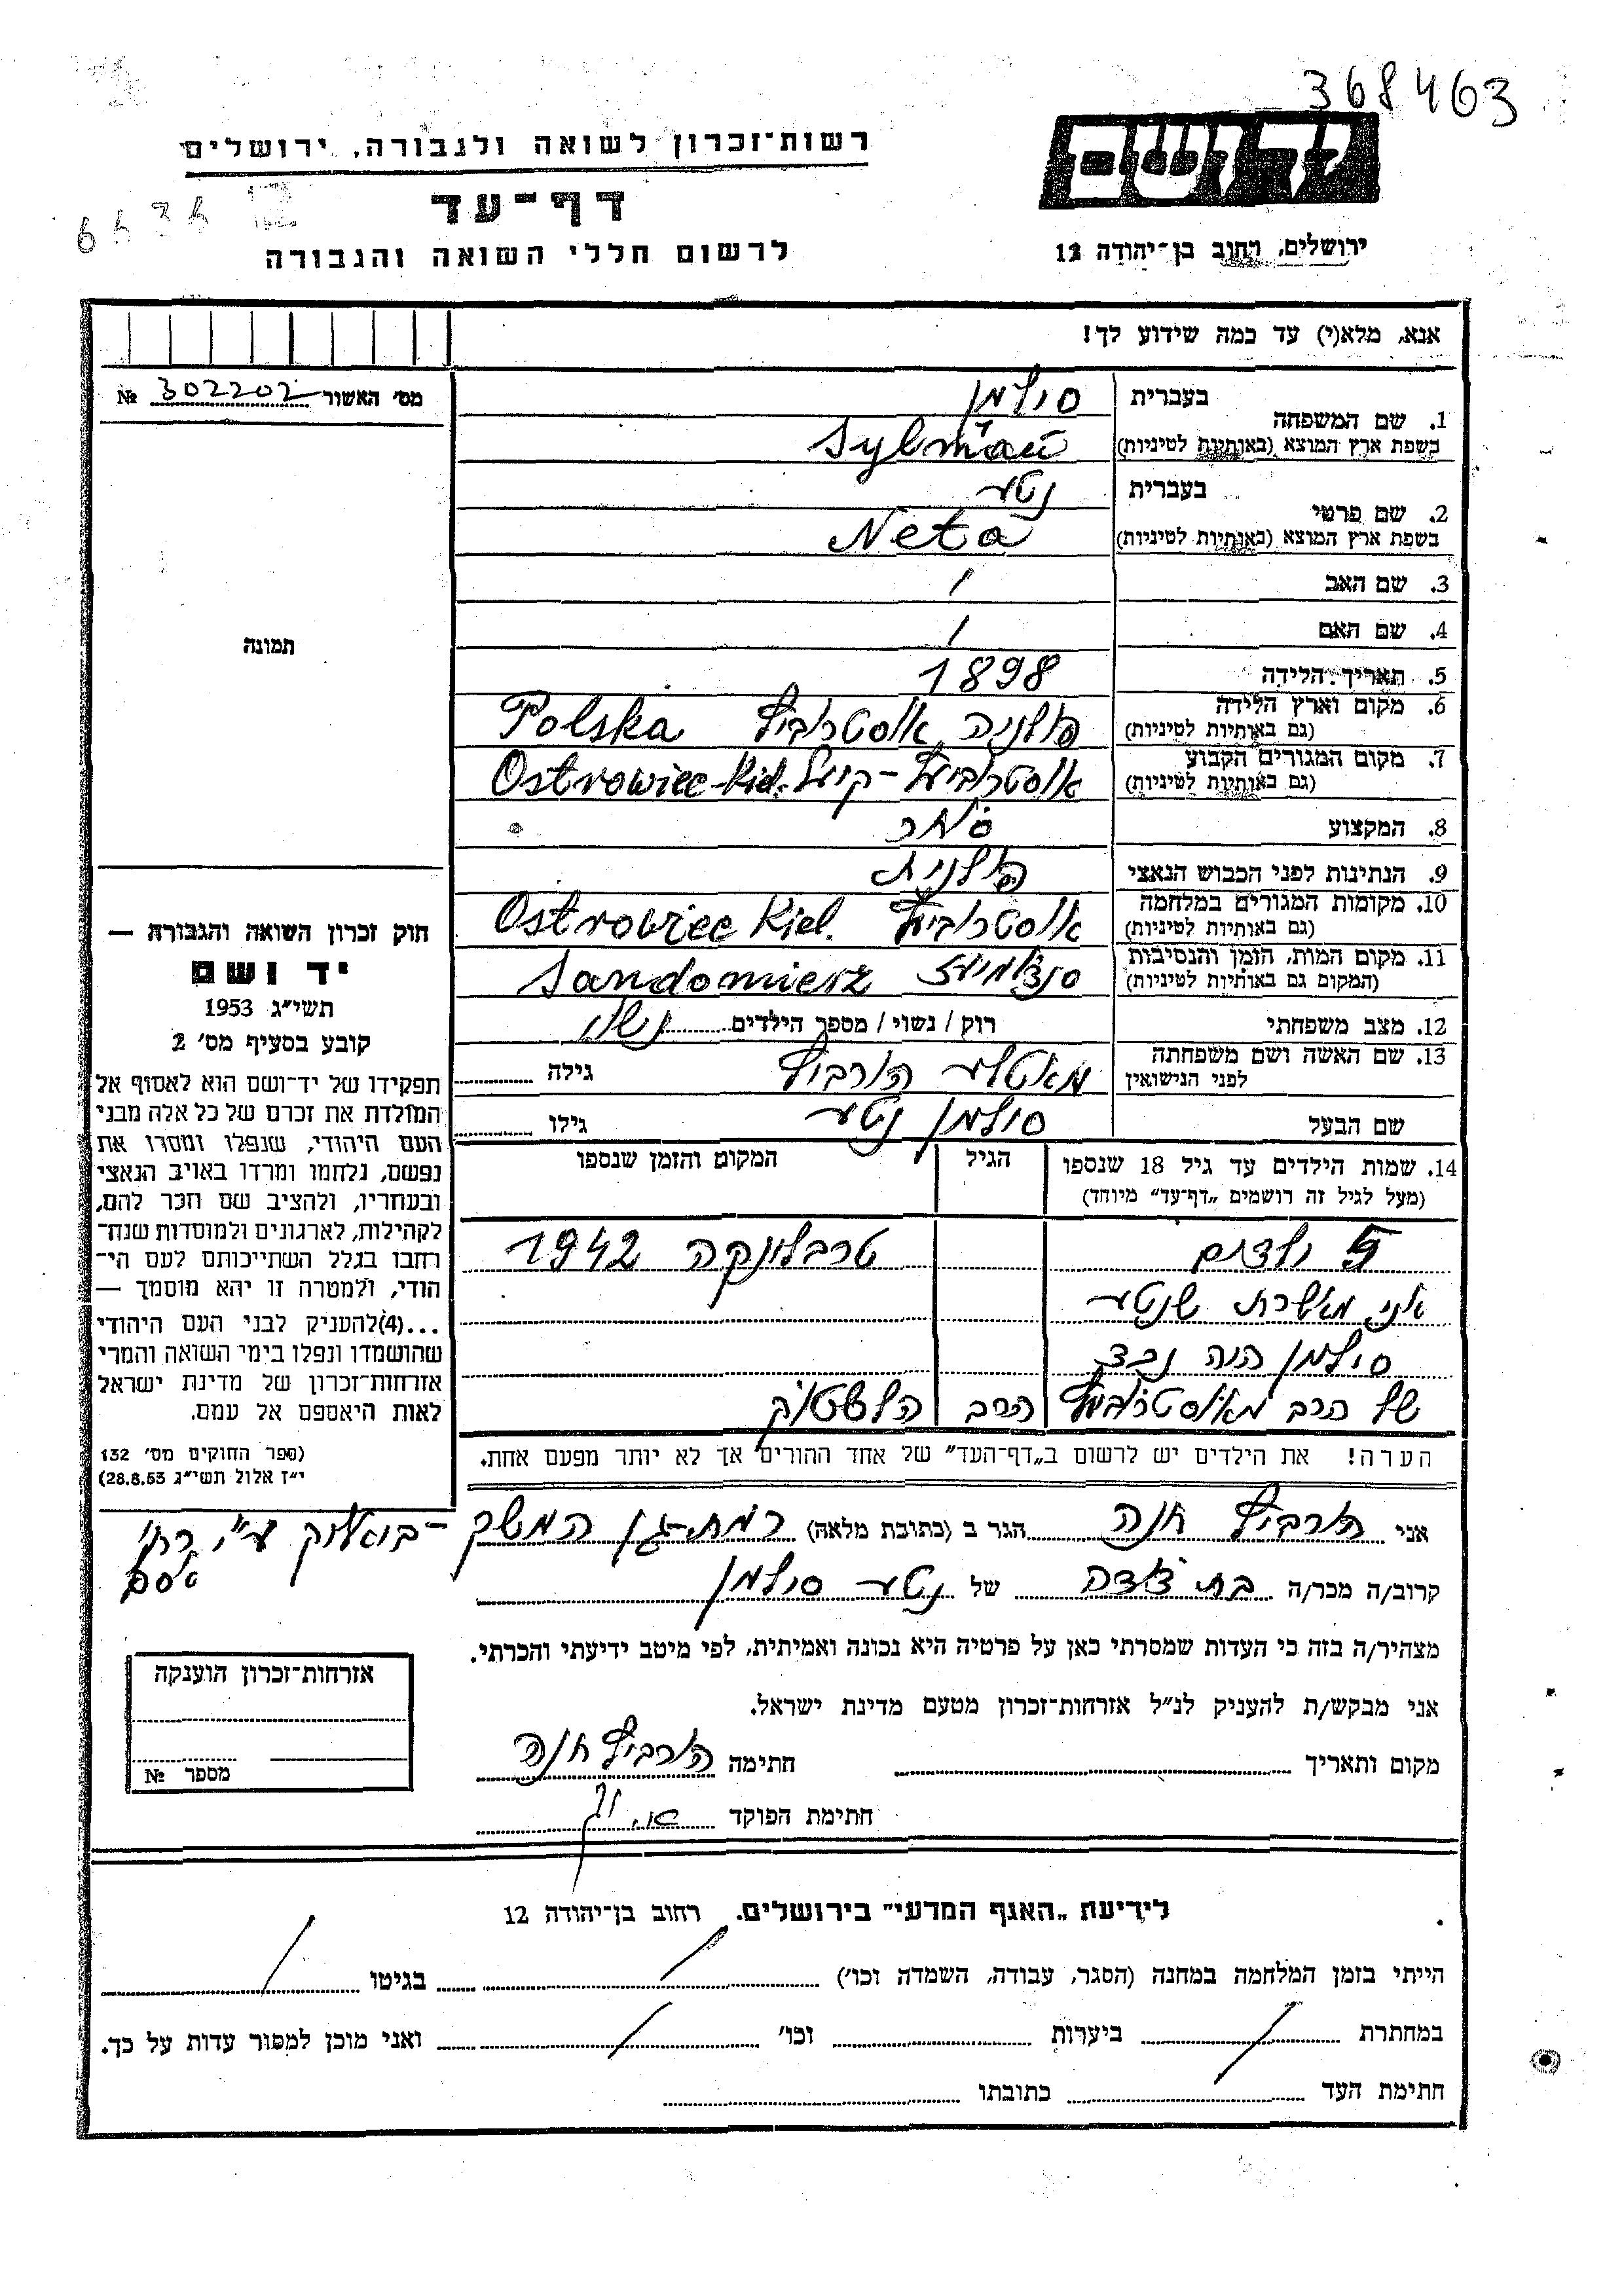 368463
רשות־זכרון לשואה ולגבורה, ירושלים
יד ושם
דף־עד
לרשום חללי השואה והגבורה
ירושלים, רחוב בן־יהודה 12
אנא, מלא(י) עד כמה שידוע לך!
מס' האשור № 302202
1. שם המשפחה
בעברית סולמן
בשפת ארץ המוצא (באותיות לטיניות) Sylman
2. שם פרטי
בעברית נטע
בשפת ארץ המוצא (באותיות לטיניות) Neta
3. שם האב /
4. שם האם /
תמונה
5. תאריך הלידה 1898
6. מקום וארץ הלידה (גם באותיות לטיניות) פולניה אוסטרוביץ Polska
7. מקום המגורים הקבוע (גם באותיות לטיניות) אוסטרוביץ - קיעל Ostrowiec-Kiel.
8. המקצוע סוחר
9. הנתינות לפני הכבוש הנאצי פולנית
10. מקומות המגורים במלחמה (גם באותיות לטיניות) אוסטרוביץ Ostrowiec Kiel.
11. מקום המות, הזמן והנסיבות (המקום גם באותיות לטיניות) סנדומיעז Sandomierz
12. מצב משפחתי רוק / נשוי / מספר הילדים נשוי
13. שם האשה ושם משפחתה לפני הנישואין מאטלע הורביץ גילה
שם הבעל סולמן נטע גילו
14. שמות הילדים עד גיל 18 שנספו הגיל המקום והזמן שנספו
(מעל לגיל זה רושמים „דף־עד" מיוחד)
5 ילדים טרבלינקה 1942
אני מאשרת שנטע
סולמן היה נכד
של הרב מאוסטרוביץ הרב הלשטוק
הערה! את הילדים יש לרשום ב„דף־העד" של אחד ההורים אך לא יותר מפעם אחת.
חוק זכרון השואה והגבורה —
יד ושם
תשי"ג 1953
קובע בסעיף מס' 2
תפקידו של יד־ושם הוא לאסוף אל
המולדת את זכרם של כל אלה מבני
העם היהודי, שנפלו ומסרו את
נפשם, נלחמו ומרדו באויב הנאצי
ובעוזריו, ולהציב שם וזכר להם,
לקהילות, לארגונים ולמוסדות שנח־
רבו בגלל השתייכותם לעם הי־
הודי, ולמטרה זו יהא מוסמך —
...(4)להעניק לבני העם היהודי
שהושמדו ונפלו בימי השואה והמרי
אזרחות־זכרון של מדינת ישראל
לאות היאספם אל עמם.
(ספר החוקים מס' 132
י"ז אלול תשי"ג 28.8.53)
אני הורביץ חנה הגר ב (כתובת מלאה) רמת-גן המשק
קרוב/ה מכר/ה בת דודה של נטע סולמן
מצהיר/ה בזה כי העדות שמסרתי כאן על פרטיה היא נכונה ואמיתית, לפי מיטב ידיעתי והכרתי.
אני מבקש/ת להעניק לנ"ל אזרחות־זכרון מטעם מדינת ישראל.
מקום ותאריך חתימה הורביץ חנה
חתימת הפוקד
אזרחות־זכרון הוענקה
מספר №
לידיעת „האגף המדעי" בירושלים. רחוב בן־יהודה 12
הייתי בזמן המלחמה במחנה (הסגר, עבודה, השמדה וכו') / בגיטו /
במחתרת / ביערות וכו' / ואני מוכן למסור עדות על כך.
חתימת העד כתובתו